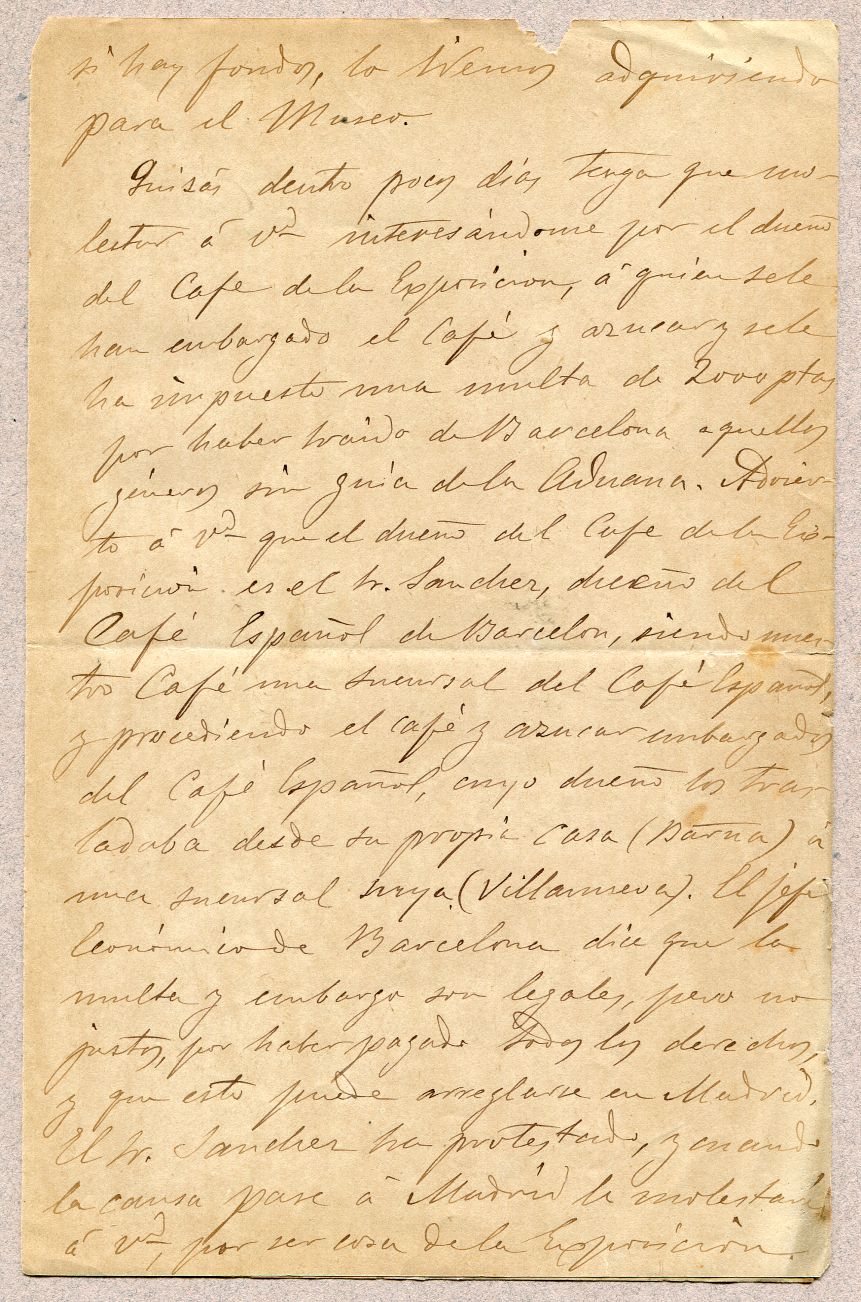 si hay fondos, lo iremos adquiriendo
para el Museo.
Quisás dentro pocos días tenga que mo-
lestar á Vd interesándome por el dueño
del Cafe de la Exposicion, á quien se le
han embargado el Café y azucar y se le
ha impuesto una multa de 2000 ptas
por haber traido de Barcelona aquellos
géneros sin guia de la Aduana. Advier-
to á Vd que el dueño del Cafe de la Ex-
posición es el Sr. Sanchez, dueño del
Café Español de Barcelon, siendo nues-
tro Café una sucursal del Café Español,
y procediendo el café y azucar embargados
del Café Español, cuyo dueño los tras
ladaba desde su propia casa (Barña) á
una sucursal suya (Villanueva). El jefe
Económico de Barcelona dice que la
multa y embargo son legales, pero no
justos, por haber pagado todos los derechos,
y que esto puede arreglarse en Madrid.
El Sr. Sanchez ha protestado, y cuando
la causa pase á Madrid le molestaré
á Vd, por ser cosa de la Exposición.